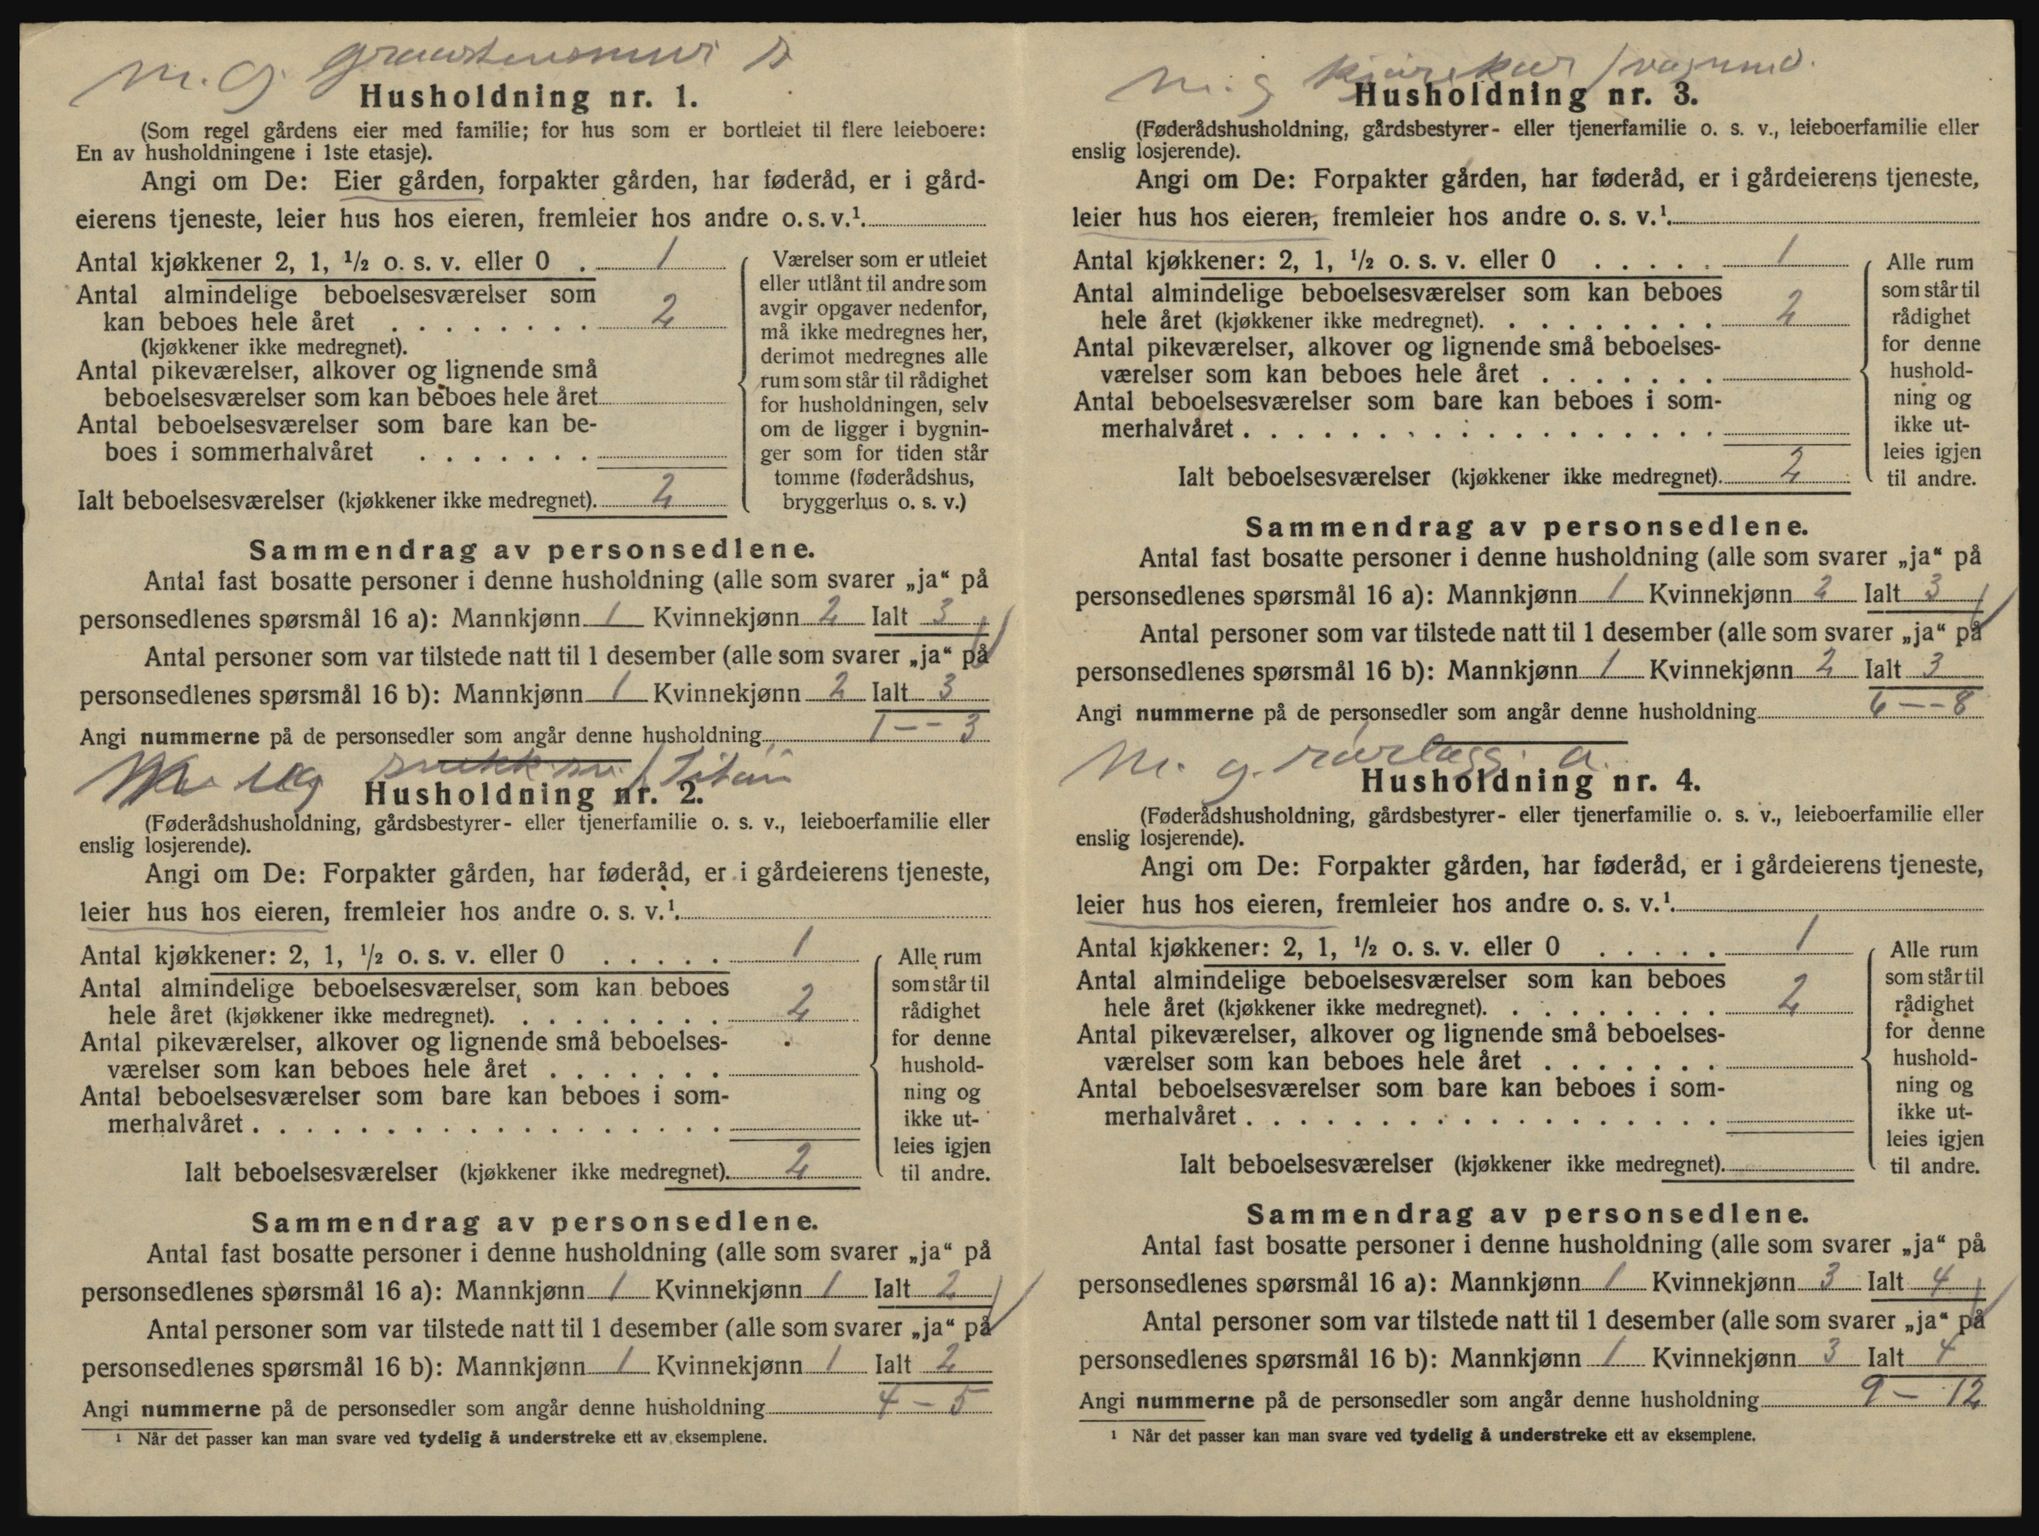 m. g.
Husholdning nr. 1.
(Som regel gårdens eier med familie; for hus som er bortleiet til flere leieboere:
En av husholdningene i 1ste etasje).
Angi om De: Eier gården, forpakter gården, har føderåd, er i gård-
eierens tjeneste, leier hus hos eieren, fremleier hos andre o. s. v.¹.
Antal kjøkkener 2, 1, ½ o. s. v. eller 0 . 1
Antal almindelige beboelsesværelser som
kan beboes hele året . . . . . . . . 2
(kjøkkener ikke medregnet).
Antal pikeværelser, alkover og lignende små
beboelsesværelser som kan beboes hele året
Antal beboelsesværelser som bare kan be-
boes i sommerhalvåret . . . . . . .
Ialt beboelsesværelser (kjøkkener ikke medregnet). 2
Værelser som er utleiet
eller utlånt til andre som
avgir opgaver nedenfor,
må ikke medregnes her,
derimot medregnes alle
rum som står til rådighet
for husholdningen, selv
om de ligger i bygnin-
ger som for tiden står
tomme (føderådshus,
bryggerhus o. s. v.)
Sammendrag av personsedlene.
Antal fast bosatte personer i denne husholdning (alle som svarer „ja“ på
personsedlenes spørsmål 16 a): Mannkjønn 1 Kvinnekjønn 2 Ialt 3
Antal personer som var tilstede natt til 1 desember (alle som svarer „ja“ på
personsedlenes spørsmål 16 b): Mannkjønn 1 Kvinnekjønn 2 Ialt 3
Angi nummerne på de personsedler som angår denne husholdning 1 - - 3
Husholdning nr. 2.
(Føderådshusholdning, gårdsbestyrer- eller tjenerfamilie o. s. v., leieboerfamilie eller
enslig losjerende).
Angi om De: Forpakter gården, har føderåd, er i gårdeierens tjeneste,
leier hus hos eieren, fremleier hos andre o. s. v.¹.
Antal kjøkkener: 2, 1, ½ o. s. v. eller 0 . . . . . 1
Antal almindelige beboelsesværelser som kan beboes
hele året (kjøkkener ikke medregnet). . . . . . . . . 2
Antal pikeværelser, alkover og lignende små beboelses-
værelser som kan beboes hele året . . . . . . .
Antal beboelsesværelser som bare kan beboes i som-
merhalvåret . . . . . . . . . . . . . . . . . .
Ialt beboelsesværelser (kjøkkener ikke medregnet). 2
Alle rum
som står til
rådighet
for denne
hushold-
ning og
ikke ut-
leies igjen
til andre.
Sammendrag av personsedlene.
Antal fast bosatte personer i denne husholdning (alle som svarer „ja“ på
personsedlenes spørsmål 16 a): Mannkjønn 1 Kvinnekjønn 1 Ialt 2
Antal personer som var tilstede natt til 1 desember (alle som svarer „ja“ på
personsedlenes spørsmål 16 b): Mannkjønn 1 Kvinnekjønn 1 Ialt 2
Angi nummerne på de personsedler som angår denne husholdning 4 - 5
¹ Når det passer kan man svare ved tydelig å understreke ett av eksemplene.
m. g
Husholdning nr. 3.
(Føderådshusholdning, gårdsbestyrer- eller tjenerfamilie o. s. v., leieboerfamilie eller
enslig losjerende).
Angi om De: Forpakter gården, har føderåd, er i gårdeierens tjeneste,
leier hus hos eieren, fremleier hos andre o. s. v.¹.
Antal kjøkkener: 2, 1, ½ o. s. v. eller 0 . . . . . 1
Antal almindelige beboelsesværelser som kan beboes
hele året (kjøkkener ikke medregnet). . . . . . . . . 2
Antal pikeværelser, alkover og lignende små beboelses-
værelser som kan beboes hele året . . . . . . .
Antal beboelsesværelser som bare kan beboes i som-
merhalvåret . . . . . . . . . . . . . . . . . .
Ialt beboelsesværelser (kjøkkener ikke medregnet). 2
Alle rum
som står til
rådighet
for denne
hushold-
ning og
ikke ut-
leies igjen
til andre.
Sammendrag av personsedlene.
Antal fast bosatte personer i denne husholdning (alle som svarer „ja“ på
personsedlenes spørsmål 16 a): Mannkjønn 1 Kvinnekjønn 2 Ialt 3
Antal personer som var tilstede natt til 1 desember (alle som svarer „ja“ på
personsedlenes spørsmål 16 b): Mannkjønn 1 Kvinnekjønn 2 Ialt 3
Angi nummerne på de personsedler som angår denne husholdning 6 - - 8
m. g. rørlegg. a.
Husholdning nr. 4.
(Føderådshusholdning, gårdsbestyrer- eller tjenerfamilie o. s. v., leieboerfamilie eller
enslig losjerende).
Angi om De: Forpakter gården, har føderåd, er i gårdeierens tjeneste,
leier hus hos eieren, fremleier hos andre o. s. v.¹.
Antal kjøkkener: 2, 1, ½ o. s. v. eller 0 . . . . . 1
Antal almindelige beboelsesværelser som kan beboes
hele året (kjøkkener ikke medregnet). . . . . . . . . 2
Antal pikeværelser, alkover og lignende små beboelses-
værelser som kan beboes hele året . . . . . . .
Antal beboelsesværelser som bare kan beboes i som-
merhalvåret . . . . . . . . . . . . . . . . . .
Ialt beboelsesværelser (kjøkkener ikke medregnet).
Alle rum
som står til
rådighet
for denne
hushold-
ning og
ikke ut-
leies igjen
til andre.
Sammendrag av personsedlene.
Antal fast bosatte personer i denne husholdning (alle som svarer „ja“ på
personsedlenes spørsmål 16 a): Mannkjønn 1 Kvinnekjønn 3 Ialt 4
Antal personer som var tilstede natt til 1 desember (alle som svarer „ja“ på
personsedlenes spørsmål 16 b): Mannkjønn 1 Kvinnekjønn 3 Ialt 4
Angi nummerne på de personsedler som angår denne husholdning 9 - 12
¹ Når det passer kan man svare ved tydelig å understreke ett av eksemplene.